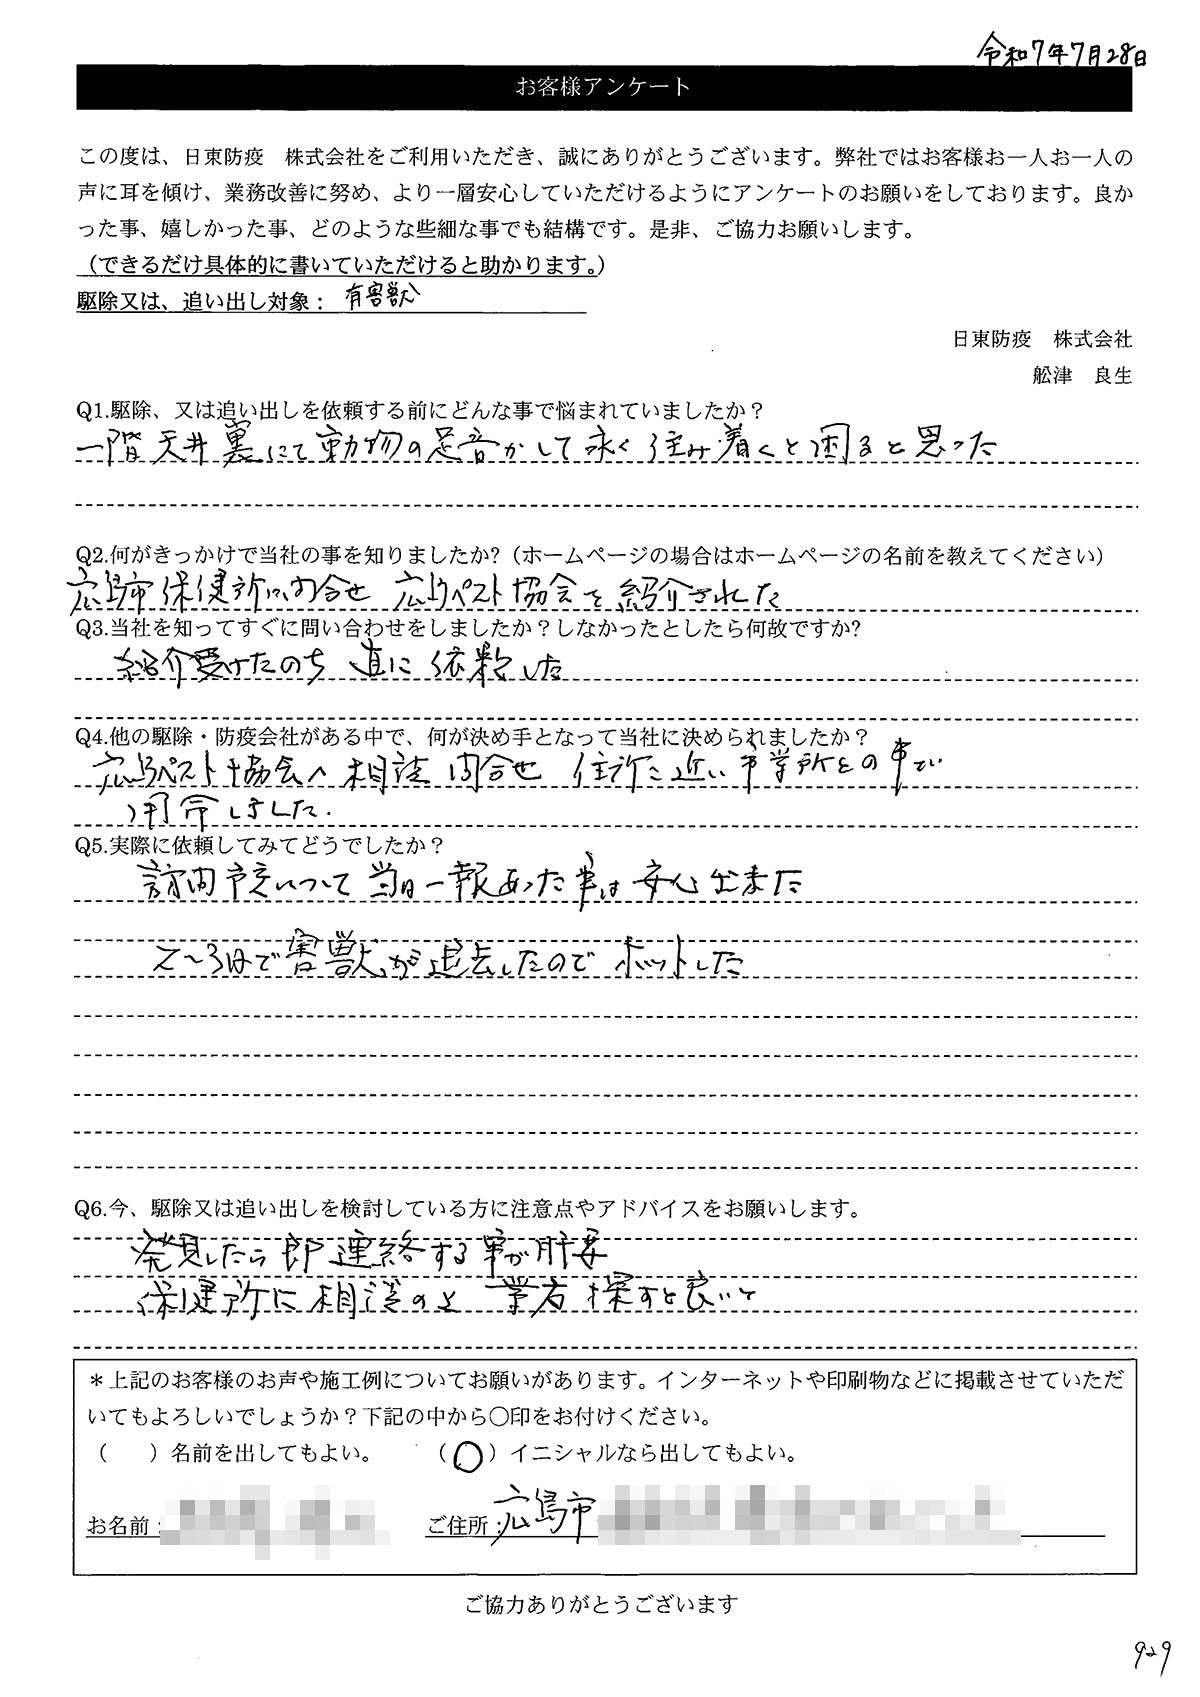 令和7年7月28日
お客様アンケート
この度は、日東防疫　株式会社をご利用いただき、誠にありがとうございます。弊社ではお客様お一人お一人の
声に耳を傾け、業務改善に努め、より一層安心していただけるようにアンケートのお願いをしております。良か
った事、嬉しかった事、どのような些細な事でも結構です。是非、ご協力お願いします。
（できるだけ具体的に書いていただけると助かります。）
駆除又は、追い出し対象： 有害獣
日東防疫　株式会社
舩津　良生
Q1.駆除、又は追い出しを依頼する前にどんな事で悩まれていましたか？
一階天井裏にて動物の足音かして永く住み着くと困ると思った
Q2.何がきっかけで当社の事を知りましたか?（ホームページの場合はホームページの名前を教えてください）
広島市保健所に問合せ 広島ペスト協会を紹介された
Q3.当社を知ってすぐに問い合わせをしましたか？しなかったとしたら何故ですか?
紹介受けたのち 直に依頼した
Q4.他の駆除・防疫会社がある中で、何が決め手となって当社に決められましたか？
広島ペスト協会へ相談 問合せ 住所に近い事業所との事で
用命しました.
Q5.実際に依頼してみてどうでしたか？
訪問予定について当日一報あった事は安心出来た
2〜3日で害獣が退去したのでホットした
Q6.今、駆除又は追い出しを検討している方に注意点やアドバイスをお願いします。
発見したら即連絡する事が肝要
保健所に相談のよ 業者探すと良いと
＊上記のお客様のお声や施工例についてお願いがあります。インターネットや印刷物などに掲載させていただ
いてもよろしいでしょうか？下記の中から〇印をお付けください。
（　　）名前を出してもよい。　　（○）イニシャルなら出してもよい。
お名前：　　ご住所：広島市
ご協力ありがとうございます
929